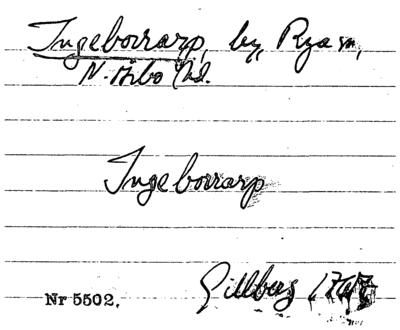 Ingeborrarp, by, Rya sn,
N. Åsbo hd.
Ingeborrarp
Gillberg
Nr 5502.